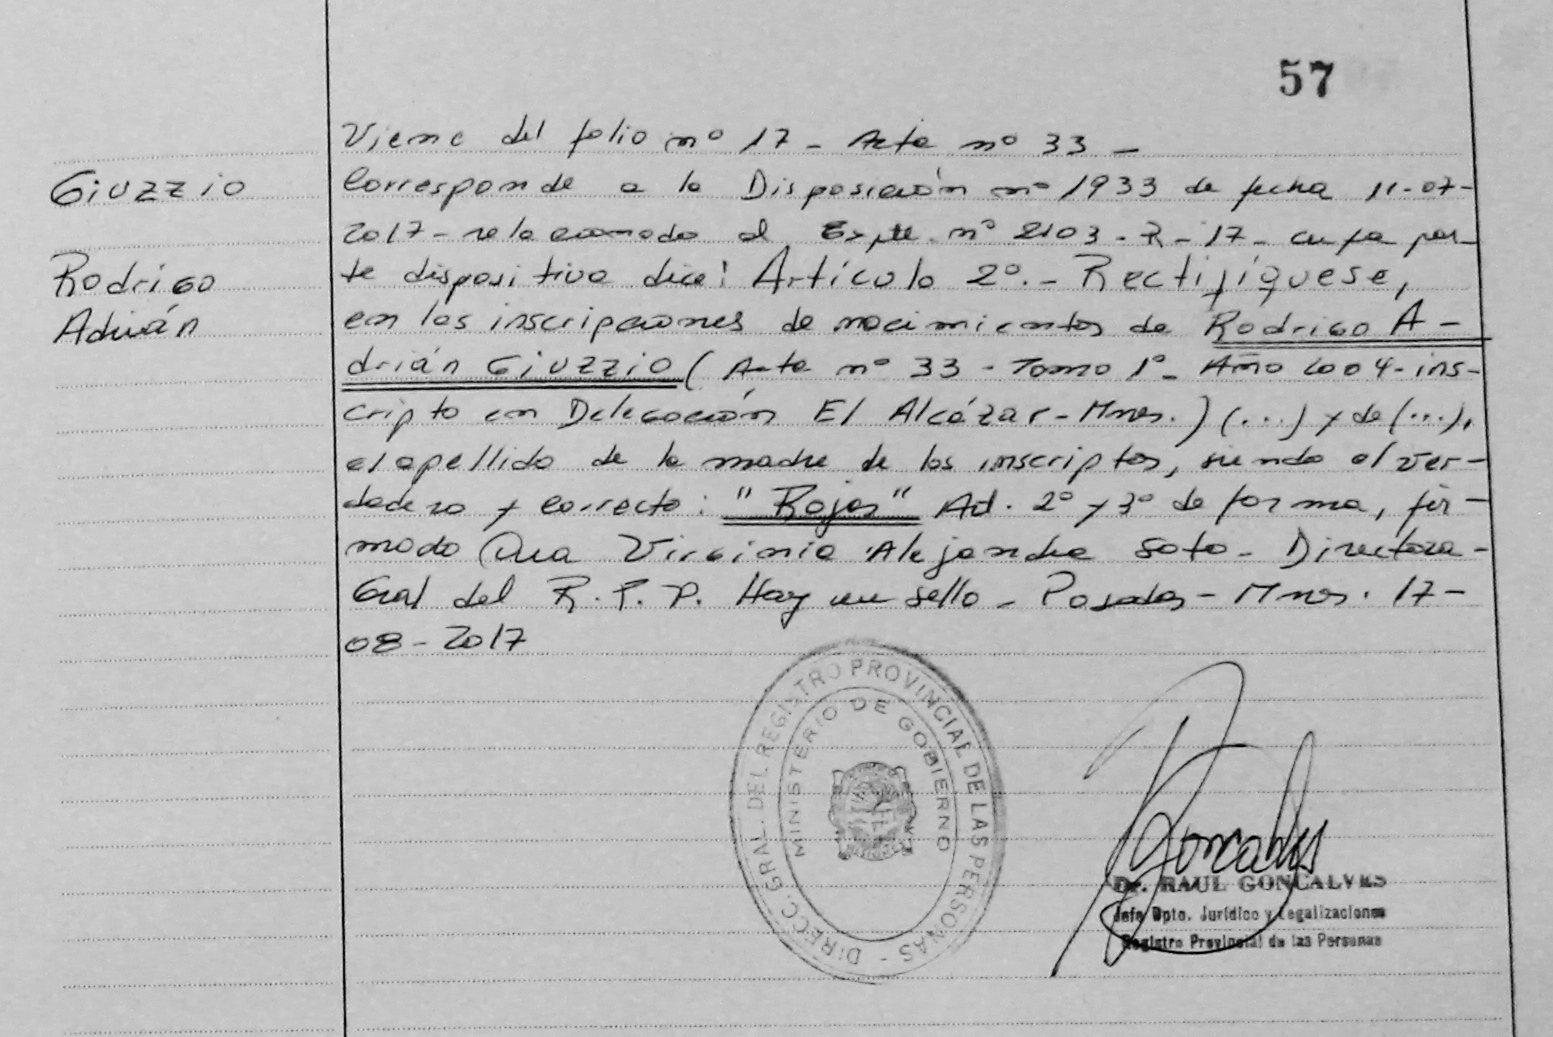 57
Viene del folio nº 17 - Acta nº 33 -
Giuzzio
Corresponde a la Disposición nº 1933 de fecha 11-07-
2017 - relacionado al Expte. nº 2103 - R - 17 - cuya par-
Rodrigo
te dispositiva dice: Artículo 2º. - Rectifíquese,
Adrián
en las inscripciones de nacimientos de Rodrigo A-
drián GIUZZIO (Acta nº 33 - Tomo 1º - Año 2004 - ins-
cripto en Delegación El Alcázar - Mnes.) (...) y de (...),
el apellido de la madre de los inscriptos, siendo el ver-
dadero y correcto: "Rojas" Ad. 2º y 3º de forma, fir-
mado Dra Virginia Alejandra Soto - Directora -
Gral del R. P. P. Hay un sello - Posadas - Mnes. 17-
08 - 2017
DIRECC. GRAL. DEL REGISTRO PROVINCIAL DE LAS PERSONAS -
MINISTERIO DE GOBIERNO
MISIONES
Goncalves
Dr. RAUL GONCALVES
Jefe Dpto. Jurídico y Legalizaciones
Registro Provincial de las Personas